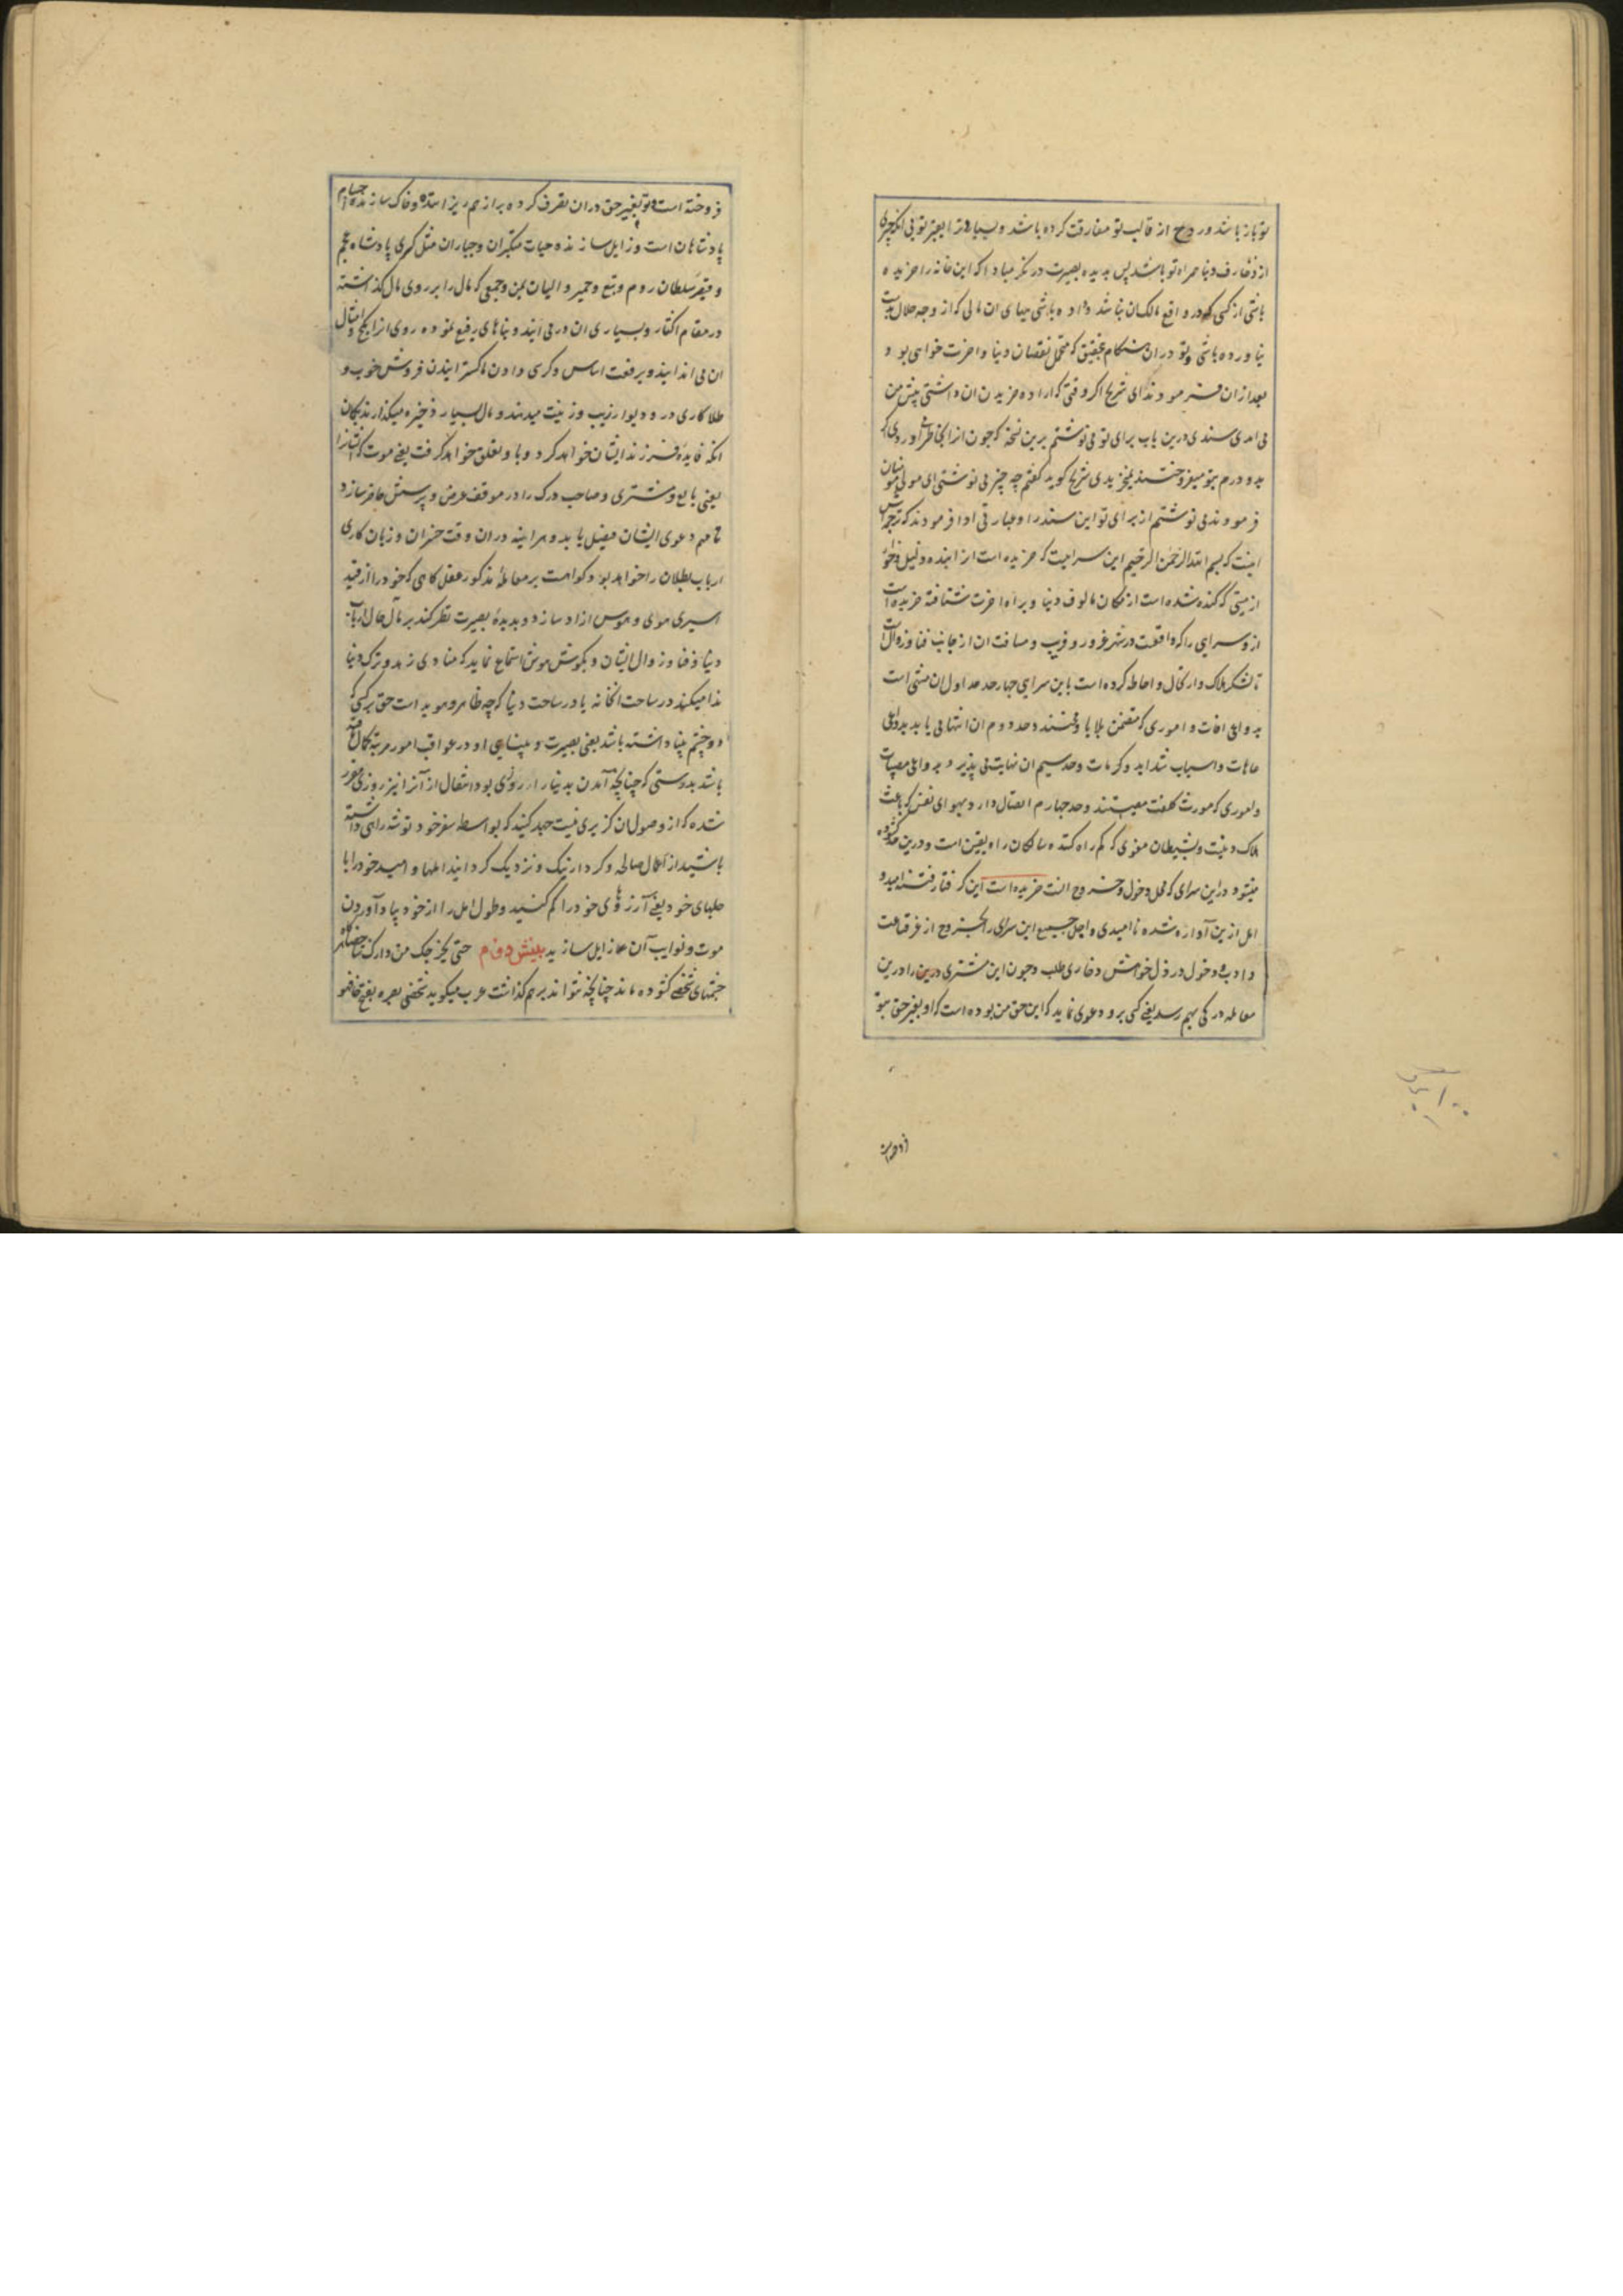 تو باز باشد و روح از قالب تو مفارقت کرده باشد و بسپارند ترا بقبر تو بی انکه چیزی
از زخارف دنیا همراه تو باشد پس بدیده بصیرت در نکر مبادا که این خانه را خریده
باشی از کسی که در واقع مالک ان نباشد و داده باشی بهای ان مالی که از وجه حلال بدست
نیاورده باشی و تو در ان هنکام بتحقیق که متحمل نقصان دنیا و اخرت خواهی بود و
بعد از ان فرمودند ای شریح اکر وقتی که اراده خریدن ان داشتی پیش من
می امدی سندی درین باب برای تو می نوشتم برین نسخه که چون انرا بخاطر می اوردی اکر
بدو درم بتو میفروختند نمیخریدی شریح کوید کفتم چه چیز می نوشتی ای مولی مومنان
فرمودند می نوشتم از برای تو این سند را و عبارتی ادا فرمودند که ترجمه اش
اینست که بسم الله الرحمن الرحیم این سرائیست که خریده است انرا بنده ذلیل و خوار
از میتی که کنده شده است از مکان مالوف دنیا و براه اخرت شتافته خریده است
ازو سرایی را که واقعست در شهر غرور و فریب و مسافت ان از جانب فنا و زوال است
تا لشکر هلاک و ارتحال و احاطه کرده است باین سرای چهار حد حد اول ان منتهی است
بدواعی افات و اموری که متضمن بلایا و محنتند و حد دوم ان انتها می یابد بدواعی
عاهات و اسباب شداید و کربات و حد سیم ان نهایت می پذیرد بدواعی مصیبات
و اموری که مورث کلفت معیشتند و حد چهارم اتصال دارد بهوای نفس که باعث
هلاک دنیست و بشیطان مغوی که کم راه کننده سالکان راه یقین است و درین حد کشوده
میشود در این سرای که محل دخول و خروج انست خریده است این کرفتار رفته امید و
امل ازین آواره شده ناامیدی و اجل جمیع این سرای را بخروج از غرفه قناعت
و ادب و دخول در ذل خواهش و خاری طلب و چون این مشتری درین را درین
معامله درکی بهم رسد یعنی کسی برو دعوی نماید که این حق من بوده است که او بغیر حق بتو
فروخته است و تو بغیر حق دران تصرف کرده براز هم ریزاننده و خاک سازنده اجسام
پادشاهان است و زایل سازنده حیات متکبران و جباران مثل کسری پادشاه عجم
و قیصر سلطان روم و تبع و حمیر و الیان یمن و جمعی که مال را بر روی مال کذاشته
در مقام اکثار و بسیاری ان در می ایند و بناهای رفیع نموده روی انرا بکچ و امثال
ان می اندایند و برفعت اساس و کرسی دادن با کسترانیدن فروش خوب و
طلا کاری در و دیوار زیب و زینت میدهند و مال بسیار ذخیره میکذارند بکمان
انکه فایده فرزند ایشان خواهد کرد و باو تعلق خواهد کرفت یعنی موت که ایشانرا
یعنی بایع و مشتری و صاحب درک را در موقف عرض و پرسش حاضر سازد
تا مهم دعوی ایشان فیصل یابد و هراینه دران وقت خسران و زیان کاری
ارباب بطلان را خواهد بود و کواهست بر معامله مذکور عقل کاهی که خود را از قید
اسیری هوی و هوس ازاد سازد و بدیده بصیرت نظر کند بر مال حال ارباب
دنیا و فنا و زوال ایشان و بکوش هوش استماع نماید که منادی زهد و ترک دنیا
ندا میکند در ساحت انخانه یا در ساحت دنیا که چه ظاهر و هویداست حق بر کسی که
دو چشم بینا داشته باشد یعنی بصیرت و بینایی او در عواقب امور مرتبه کمال یافته
باشد بدرستی که چنانچه آمدن بدنیا را روزی بود انتقال از آنرا نیز روزی مقرر
شده که از وصول ان کزیری نیست جهد کنید که بواسطه سفر خود توشه راهی داشته
باشید از اعمال صالحه و کردار نیک و نزدیک کردانید املها و امید خود را با
جلهای خود یعنی آرزوهای خود را کم کنید و طول امل را از خود بیاد آوردن
موت و نوایب آن زایل سازید بینش دوم حتی یخرجک من دارک شاخصا
چشمهای شخصی کشوده ماند چنانچه نتواند بر هم کذاشت عرب میکوید شخص بصره بفتح خا فهو